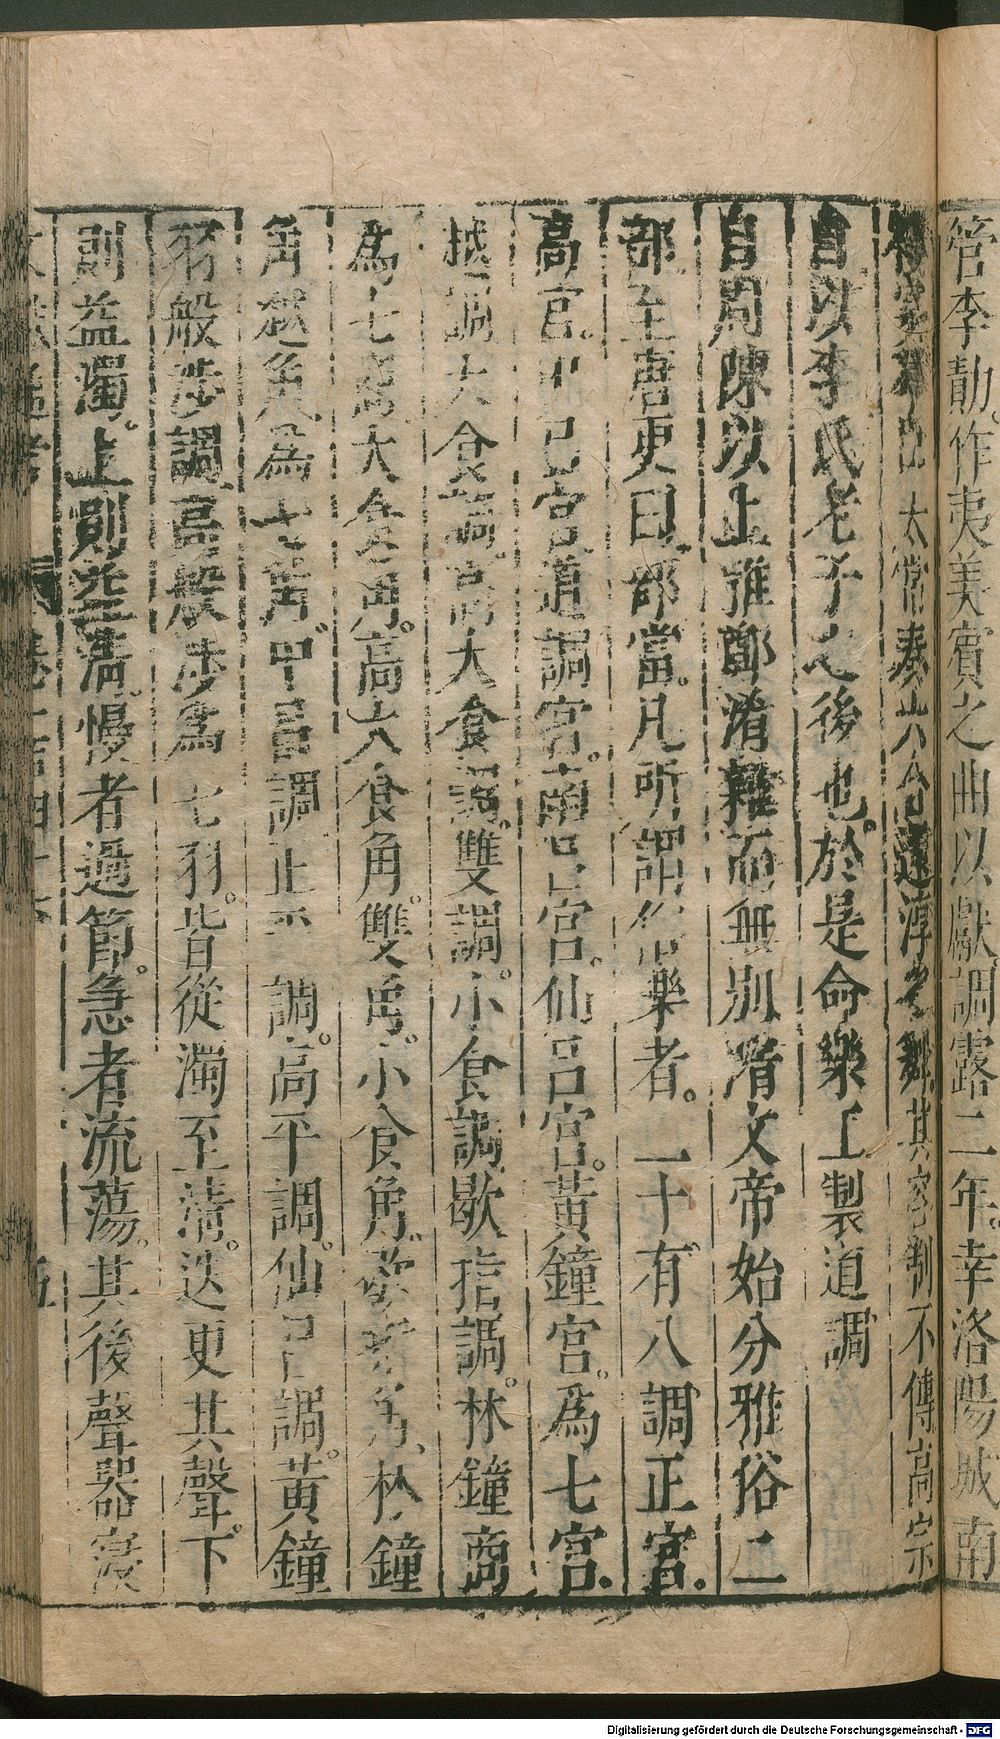 管李勣。作夷美賓之曲以獻。調露二年。幸洛陽城南
太常奏六合還淳之舞。其容制不傳高宗
自以李氏老子之後也。於是命樂工製道調
自周陳以上雅鄭淆雜而無別隋文帝始分雅俗二
部。至唐更曰。部當。凡所謂俗樂者。二十有八調正宮。
高宮。中呂宮道調宮。南呂宮。仙呂宮。黃鐘宮。為七宮。
越調大食調。高大食調。雙調。小食調歇指調。林鐘商
為七商大食角。高大食角。雙角。小食角。歇指角、林鐘
角越角、為七角。中呂調正平調。高平調。仙呂調。黃鐘
羽般涉調、高般涉為七羽。皆從濁至清。迭更其聲。下
則益濁。上則益清。慢者過節。急者流蕩。其後聲器寖
卷一百四十六
五
Digitalisierung gefördert durch die Deutsche Forschungsgemeinschaft - DFG